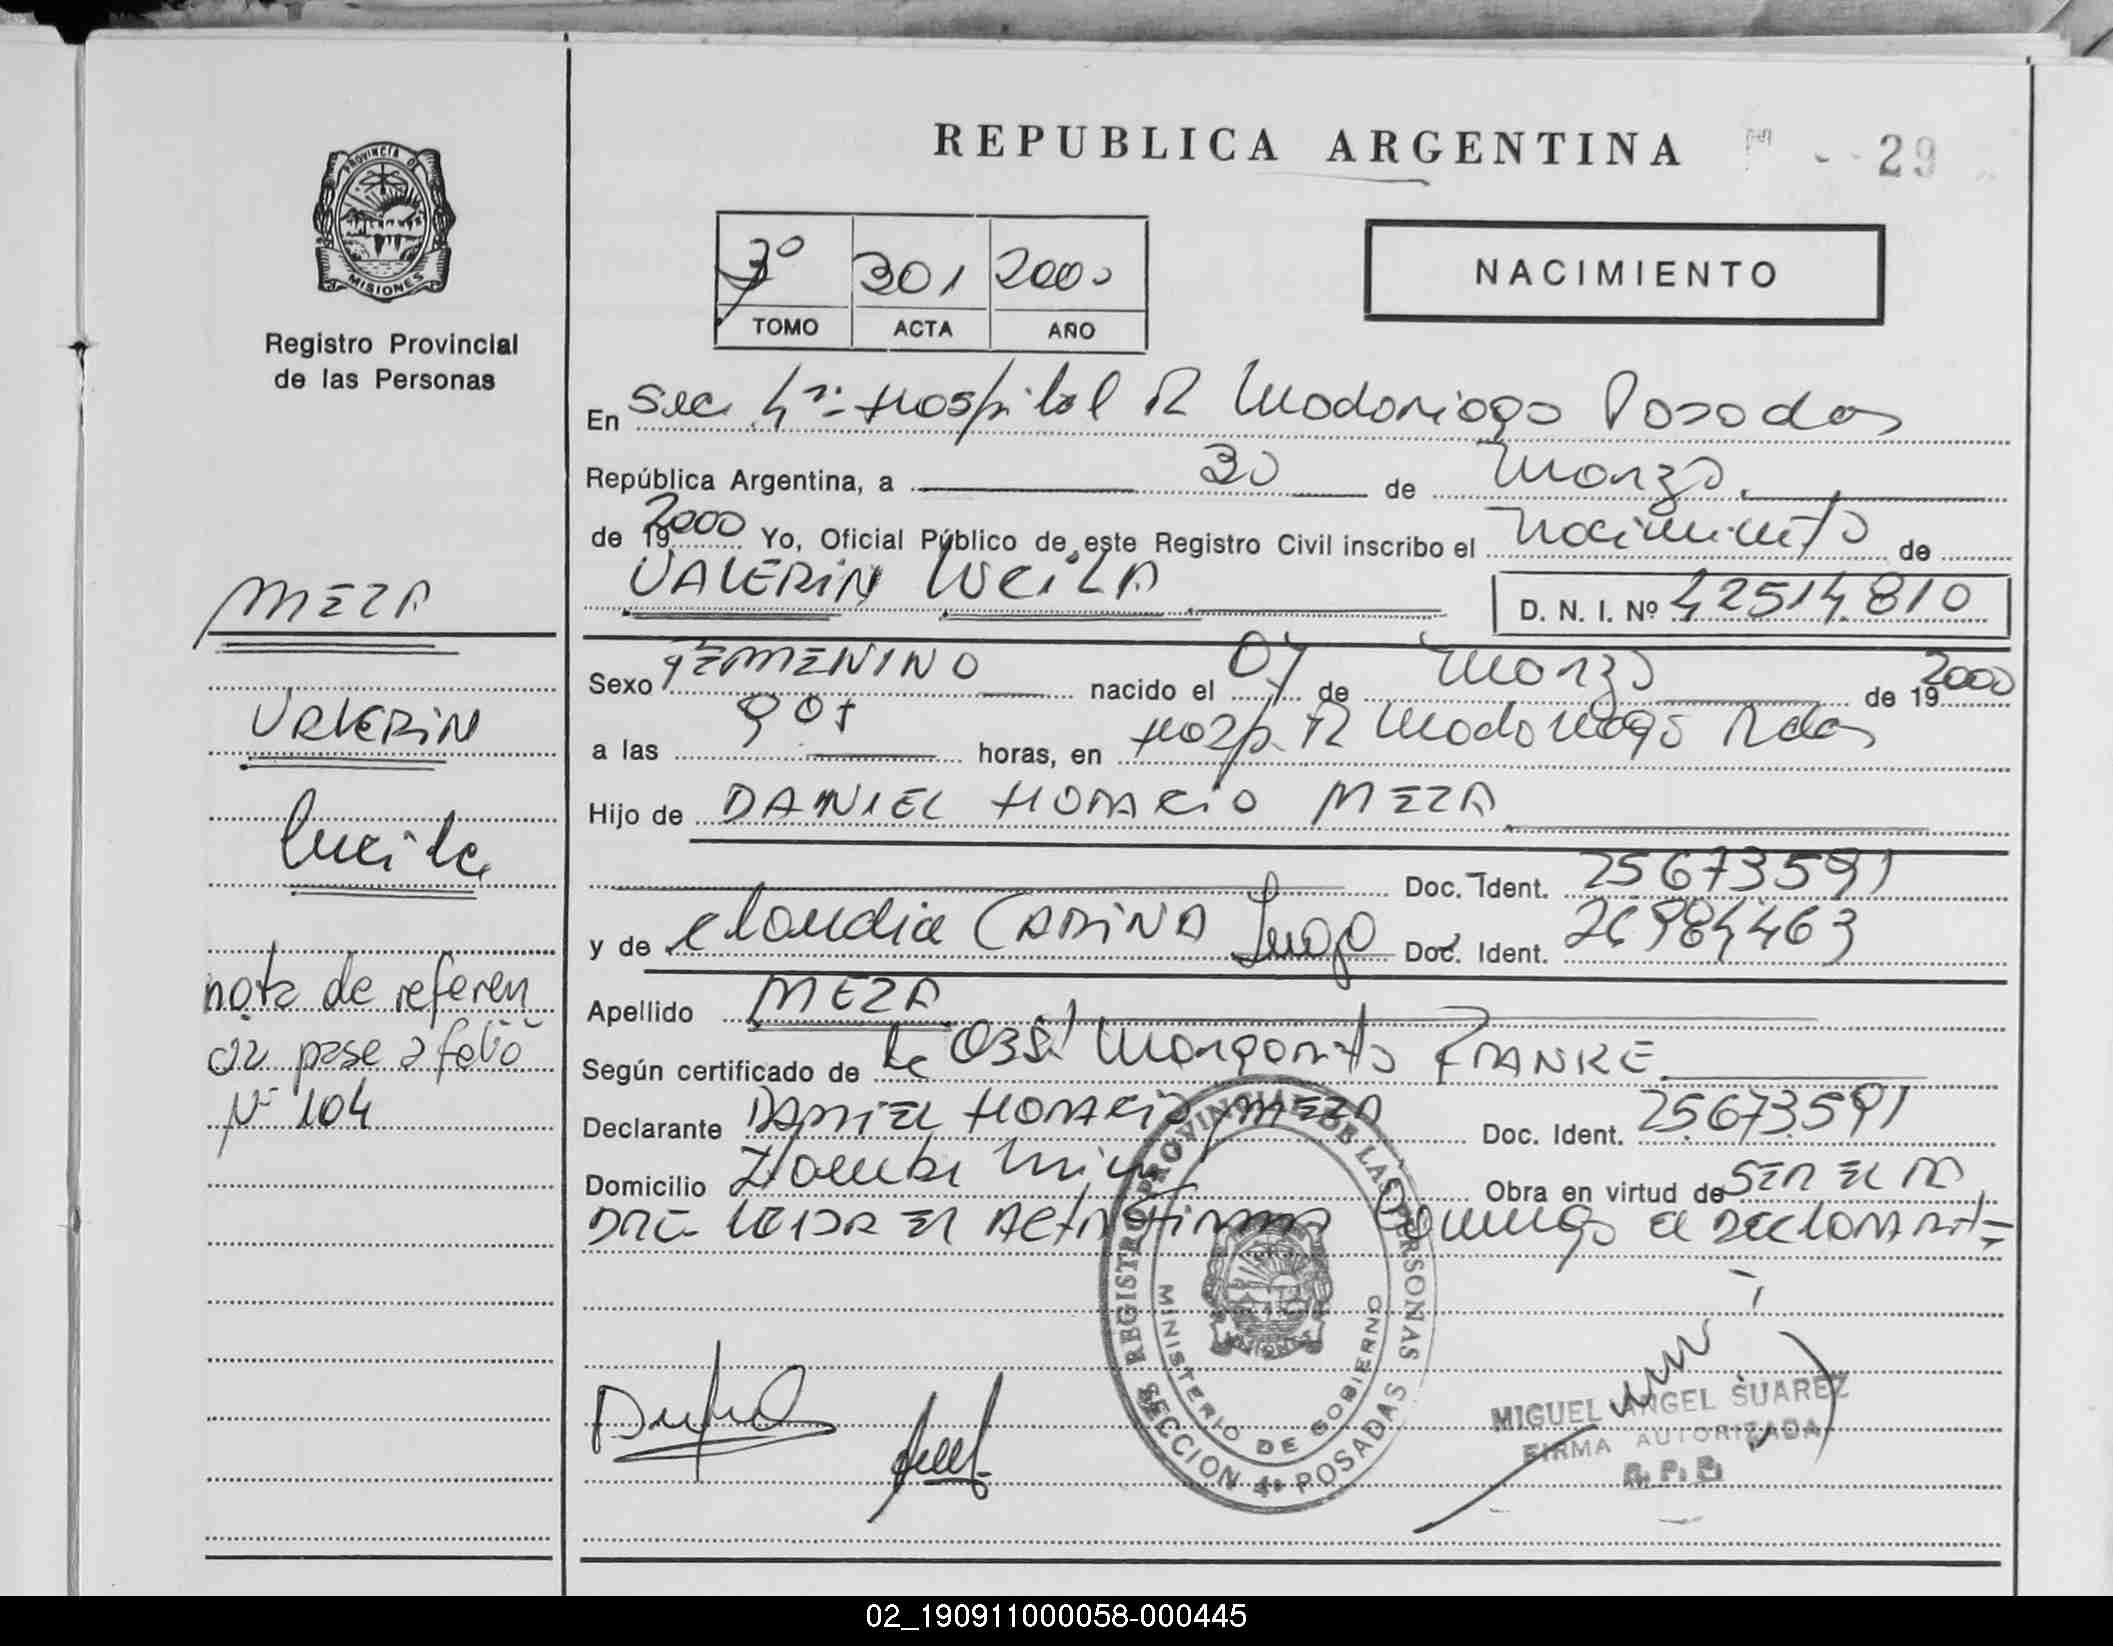 REPUBLICA ARGENTINA
29
PROVINCIA D MISIONES
Registro Provincial
de las Personas
3º 301 2000
TOMO ACTA AÑO
NACIMIENTO
En Sec. 4ª Hospital R Madariaga Posadas
República Argentina, a 30 de Marzo
de 19 2000 Yo, Oficial Público de este Registro Civil inscribo el Nacimiento de
VALERIA LUCILA D. N. I. Nº 42514.810
MEZA
Valeria
Lucila
nota de referen
cia pase a folio
Nº 104
Sexo FEMENINO nacido el 04 de Marzo de 19 2000
a las 9 05 horas, en Hosp. R Madariaga Pdas
Hijo de DANIEL HORACIO MEZA
Doc. Ident. 25673591
y de Claudia CARINA Lugo Doc. Ident. 26984463
Apellido MEZA
Según certificado de la Obst Margarita FRANKE
Declarante DANIEL HORACIO MEZA Doc. Ident. 25.673.591
Domicilio Obra en virtud de SER EL PA
DRE LEIDA EL ACTA FIRMA Conmigo el DECLARANTE
REGISTRO PROVINCIAL DE LAS PERSONAS
MINISTERIO DE GOBIERNO
SECCION 4ª POSADAS
MIGUEL ANGEL SUAREZ
FIRMA AUTORIZADA
R. P. P.
02_190911000058-000445